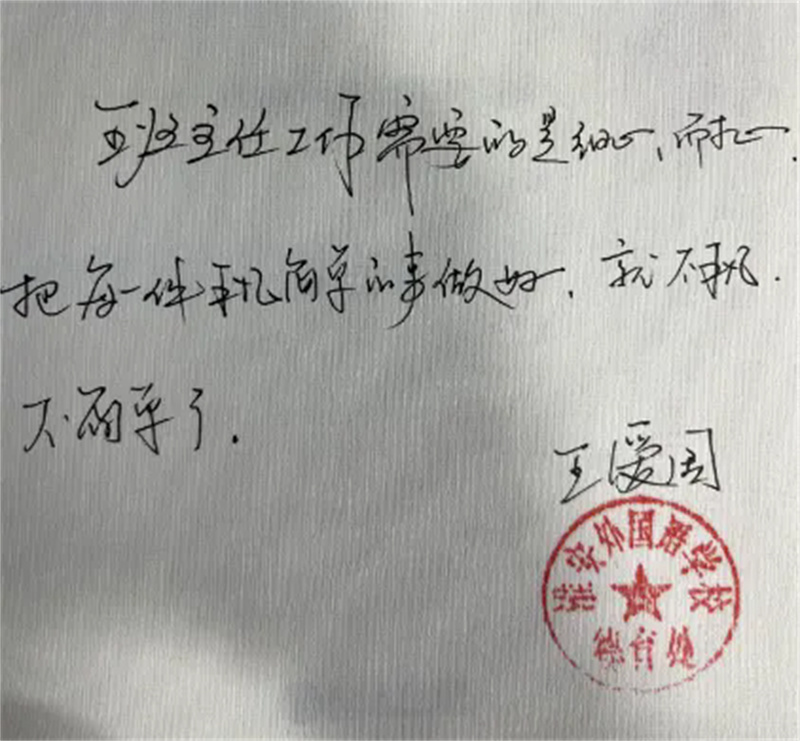 班主任工作需要的是细心、耐心.
把每一件平凡简单的事做好.就不平凡.
不简单了.
王爱国
外国语学校
德育处